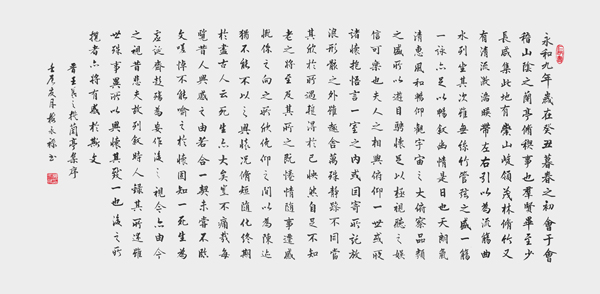 永和九年歲在癸丑暮春之初會于會
稽山陰之蘭亭脩稧事也羣賢畢至少
長咸集此地有崇山峻領茂林脩竹又
有清流激湍暎帶左右引以為流觴曲
水列坐其次雖無絲竹管弦之盛一觴
一詠亦足以暢敘幽情是日也天朗氣
清惠風和暢仰觀宇宙之大俯察品類
之盛所以遊目騁懷足以極視聽之娛
信可樂也夫人之相與俯仰一世或取
諸懷抱悟言一室之內或因寄所託放
浪形骸之外雖趣舍萬殊靜躁不同當
其欣於所遇暫得於己快然自足不知
老之將至及其所之既惓情隨事遷感
慨係之向之所欣俛仰之間以為陳迹
猶不能不以之興懷況脩短隨化終期
於盡古人云死生亦大矣豈不痛哉每
覽昔人興感之由若合一契未嘗不臨
文嗟悼不能喻之於懷固知一死生為
虛誕齊彭殤為妄作後之視今亦由今
之視昔悲夫故列敘時人錄其所述雖
世殊事異所以興懷其致一也後之
攬者亦將有感於斯文
晉王羲之撰蘭亭集序